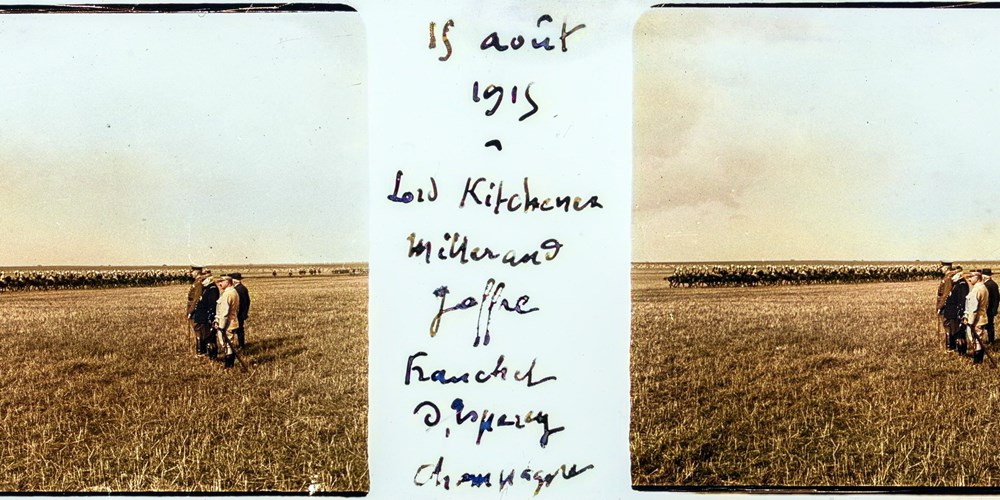 15 août
1915
Lord Kitchener
Millerand
Joffre
Franchet
D'Esperey
Champagne